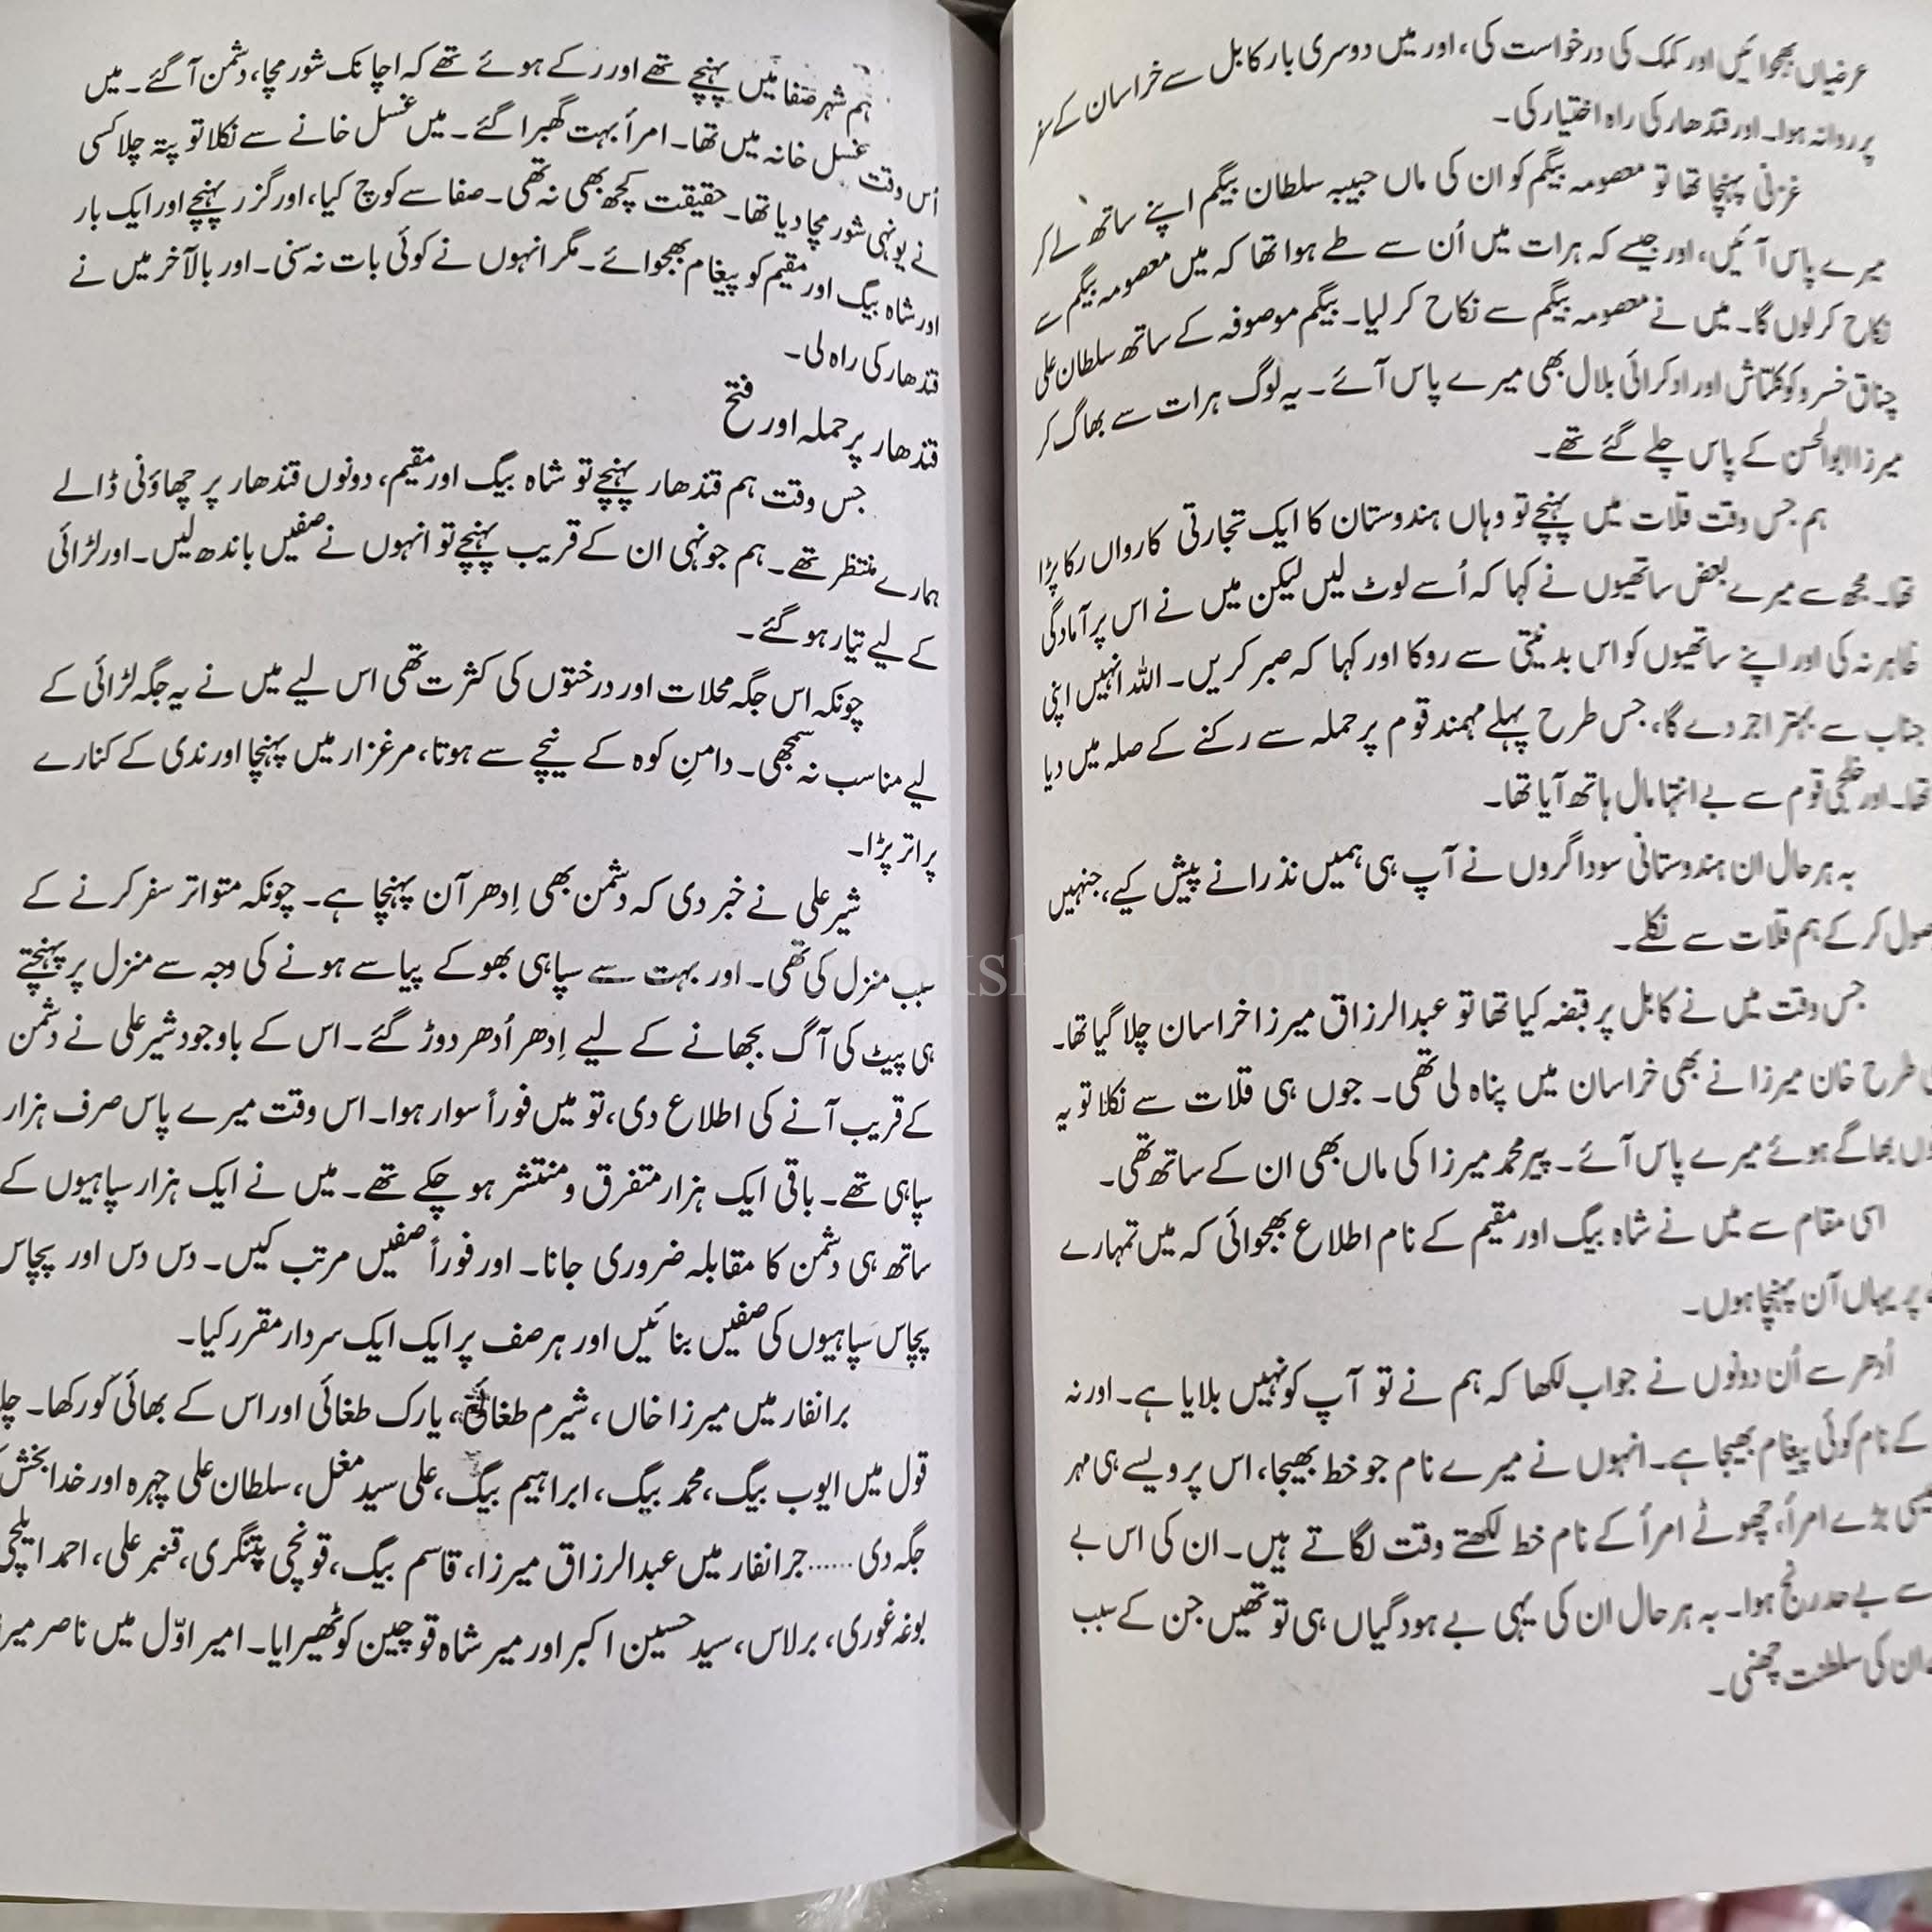 عرضیاں بھجوائیں اور کمک کی درخواست کی، اور میں دوسری بار کابل سے خراسان کے سفر
پر روانہ ہوا۔ اور قندھار کی راہ اختیار کی۔
غزنی پہنچا تھا تو معصومہ بیگم کو ان کی ماں حبیبہ سلطان بیگم اپنے ساتھ لے کر
میرے پاس آئیں، اور جیسے کہ ہرات میں اُن سے طے ہوا تھا کہ میں معصومہ بیگم سے
نکاح کر لوں گا۔ میں نے معصومہ بیگم سے نکاح کر لیا۔ بیگم موصوفہ کے ساتھ سلطان علی
چناق خسرو کوکلتاش اور اوکرائی بلال بھی میرے پاس آئے۔ یہ لوگ ہرات سے بھاگ کر
میرزا ابوالحسن کے پاس چلے گئے تھے۔
ہم جس وقت قلات میں پہنچے تو وہاں ہندوستان کا ایک تجارتی کارواں رکا پڑا
تھا۔ مجھ سے میرے بعض ساتھیوں نے کہا کہ اُسے لوٹ لیں لیکن میں نے اس پر آمادگی
ظاہر نہ کی اور اپنے ساتھیوں کو اس بدنیتی سے روکا اور کہا کہ صبر کریں۔ اللہ انہیں اپنی
جناب سے بہتر اجر دے گا، جس طرح پہلے مہمند قوم پر حملہ سے رکنے کے صلہ میں دیا
تھا۔ اور خلجی قوم سے بے انتہا مال ہاتھ آیا تھا۔
بہ ہر حال ان ہندوستانی سوداگروں نے آپ ہی ہمیں نذرانے پیش کیے، جنہیں
صول کر کے ہم قلات سے نکلے۔
جس وقت میں نے کابل پر قبضہ کیا تھا تو عبدالرزاق میرزا خراسان چلا گیا تھا۔
طرح خان میرزا نے بھی خراسان میں پناہ لی تھی۔ جوں ہی قلات سے نکلا تو یہ
وں بھاگے ہوئے میرے پاس آئے۔ پیر محمد میرزا کی ماں بھی ان کے ساتھ تھی۔
اسی مقام سے میں نے شاہ بیگ اور مقیم کے نام اطلاع بھجوائی کہ میں تمہارے
پر یہاں آن پہنچا ہوں۔
اُدھر سے اُن دونوں نے جواب لکھا کہ ہم نے تو آپ کو نہیں بلایا ہے۔ اور نہ
کے نام کوئی پیغام بھیجا ہے۔ انہوں نے میرے نام جو خط بھیجا، اس پر ویسے ہی مہر
بڑے امرأ، چھوٹے امرأ کے نام خط لکھتے وقت لگاتے ہیں۔ ان کی اس بے
سے بے حد رنج ہوا۔ بہ ہر حال ان کی یہی بے ہودگیاں ہی تو تھیں جن کے سبب
ان کی سلطنت چھنی۔
ہم شہر صفا میں پہنچے تھے اور رکے ہوئے تھے کہ اچانک شور مچا، دشمن آ گئے۔ میں
اُس وقت غسل خانہ میں تھا۔ امرأ بہت گھبرا گئے۔ میں غسل خانے سے نکلا تو پتہ چلا کسی
نے یونہی شور مچا دیا تھا۔ حقیقت کچھ بھی نہ تھی۔ صفا سے کوچ کیا، اور گزر پہنچے اور ایک بار
اور شاہ بیگ اور مقیم کو پیغام بھجوائے۔ مگر انہوں نے کوئی بات نہ سنی۔ اور بالآخر میں نے
قندھار کی راہ لی۔
قندھار پر حملہ اور فتح
جس وقت ہم قندھار پہنچے تو شاہ بیگ اور مقیم، دونوں قندھار پر چھاؤنی ڈالے
ہمارے منتظر تھے۔ ہم جونہی ان کے قریب پہنچے تو انہوں نے صفیں باندھ لیں۔ اور لڑائی
کے لیے تیار ہو گئے۔
چونکہ اس جگہ محلات اور درختوں کی کثرت تھی اس لیے میں نے یہ جگہ لڑائی کے
لیے مناسب نہ سمجھی۔ دامنِ کوہ کے نیچے سے ہوتا، مرغزار میں پہنچا اور ندی کے کنارے
پر اتر پڑا۔
شیر علی نے خبر دی کہ دشمن بھی اِدھر آن پہنچا ہے۔ چونکہ متواتر سفر کرنے کے
سبب منزل کی تھی۔ اور بہت سے سپاہی بھوکے پیاسے ہونے کی وجہ سے منزل پر پہنچتے
ہی پیٹ کی آگ بجھانے کے لیے اِدھر اُدھر دوڑ گئے۔ اس کے باوجود شیر علی نے دشمن
کے قریب آنے کی اطلاع دی، تو میں فوراً سوار ہوا۔ اس وقت میرے پاس صرف ہزار
سپاہی تھے۔ باقی ایک ہزار متفرق و منتشر ہو چکے تھے۔ میں نے ایک ہزار سپاہیوں کے
ساتھ ہی دشمن کا مقابلہ ضروری جانا۔ اور فوراً صفیں مرتب کیں۔ دس دس اور پچاس
پچاس سپاہیوں کی صفیں بنائیں اور ہر صف پر ایک ایک سردار مقرر کیا۔
برانفار میں میرزا خاں، شیرم طغائی، یارک طغائی اور اس کے بھائی کو رکھا۔
قول میں ایوب بیگ، محمد بیگ، ابراہیم بیگ، علی سید مغل، سلطان علی چہرہ اور خدا بخش
جگہ دی ...... جرانفار میں عبدالرزاق میرزا، قاسم بیگ، قونچی پتنگری، قنبر علی، احمد ایلچی
بوغہ غوری، برلاس، سید حسین اکبر اور میر شاہ قوچین کو ٹھیرایا۔ امیر اوّل میں ناصر میر